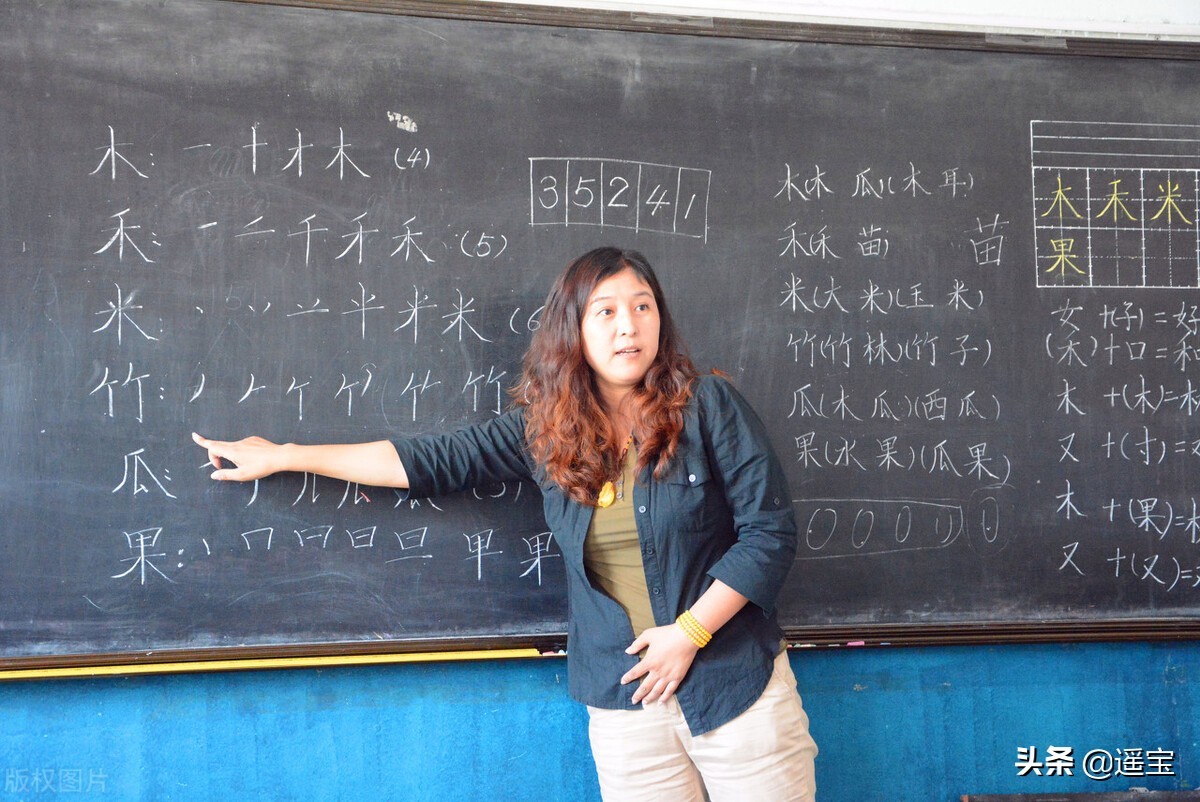 木: 一 十 オ 木 (4)
禾: 一 二 千 禾 禾 (5)
米: 丶 丷 丷一 半 米 米 (6
竹: 丿 𠂉 竹
瓜:
果: 丨 口 日 日 旦 早 果
3 5 2 4 1
木(木 瓜)(木 耳)
禾(禾 苗) 苗
米(大 米)(玉 米)
竹(竹 林)(竹 子)
瓜(木 瓜)(西 瓜)
果(水 果)(瓜 果)
木 禾 米
果
女 +(子) = 好
(禾) + 口 = 和
木 +(木)=
又 +(寸)=
木 +(果)=
又 +(又)=
版权图片
头条 @遥宝